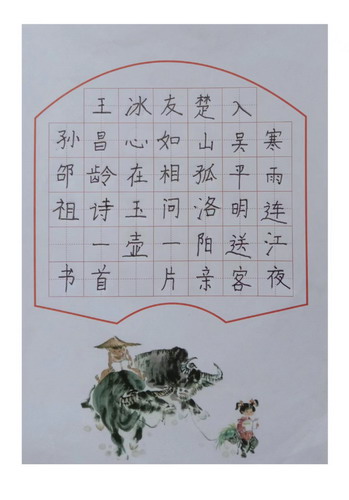 寒雨连江夜
入吴平明送客
楚山孤洛阳亲
友如相问一片
冰心在玉壶
王昌龄诗一首
孙邵祖 书